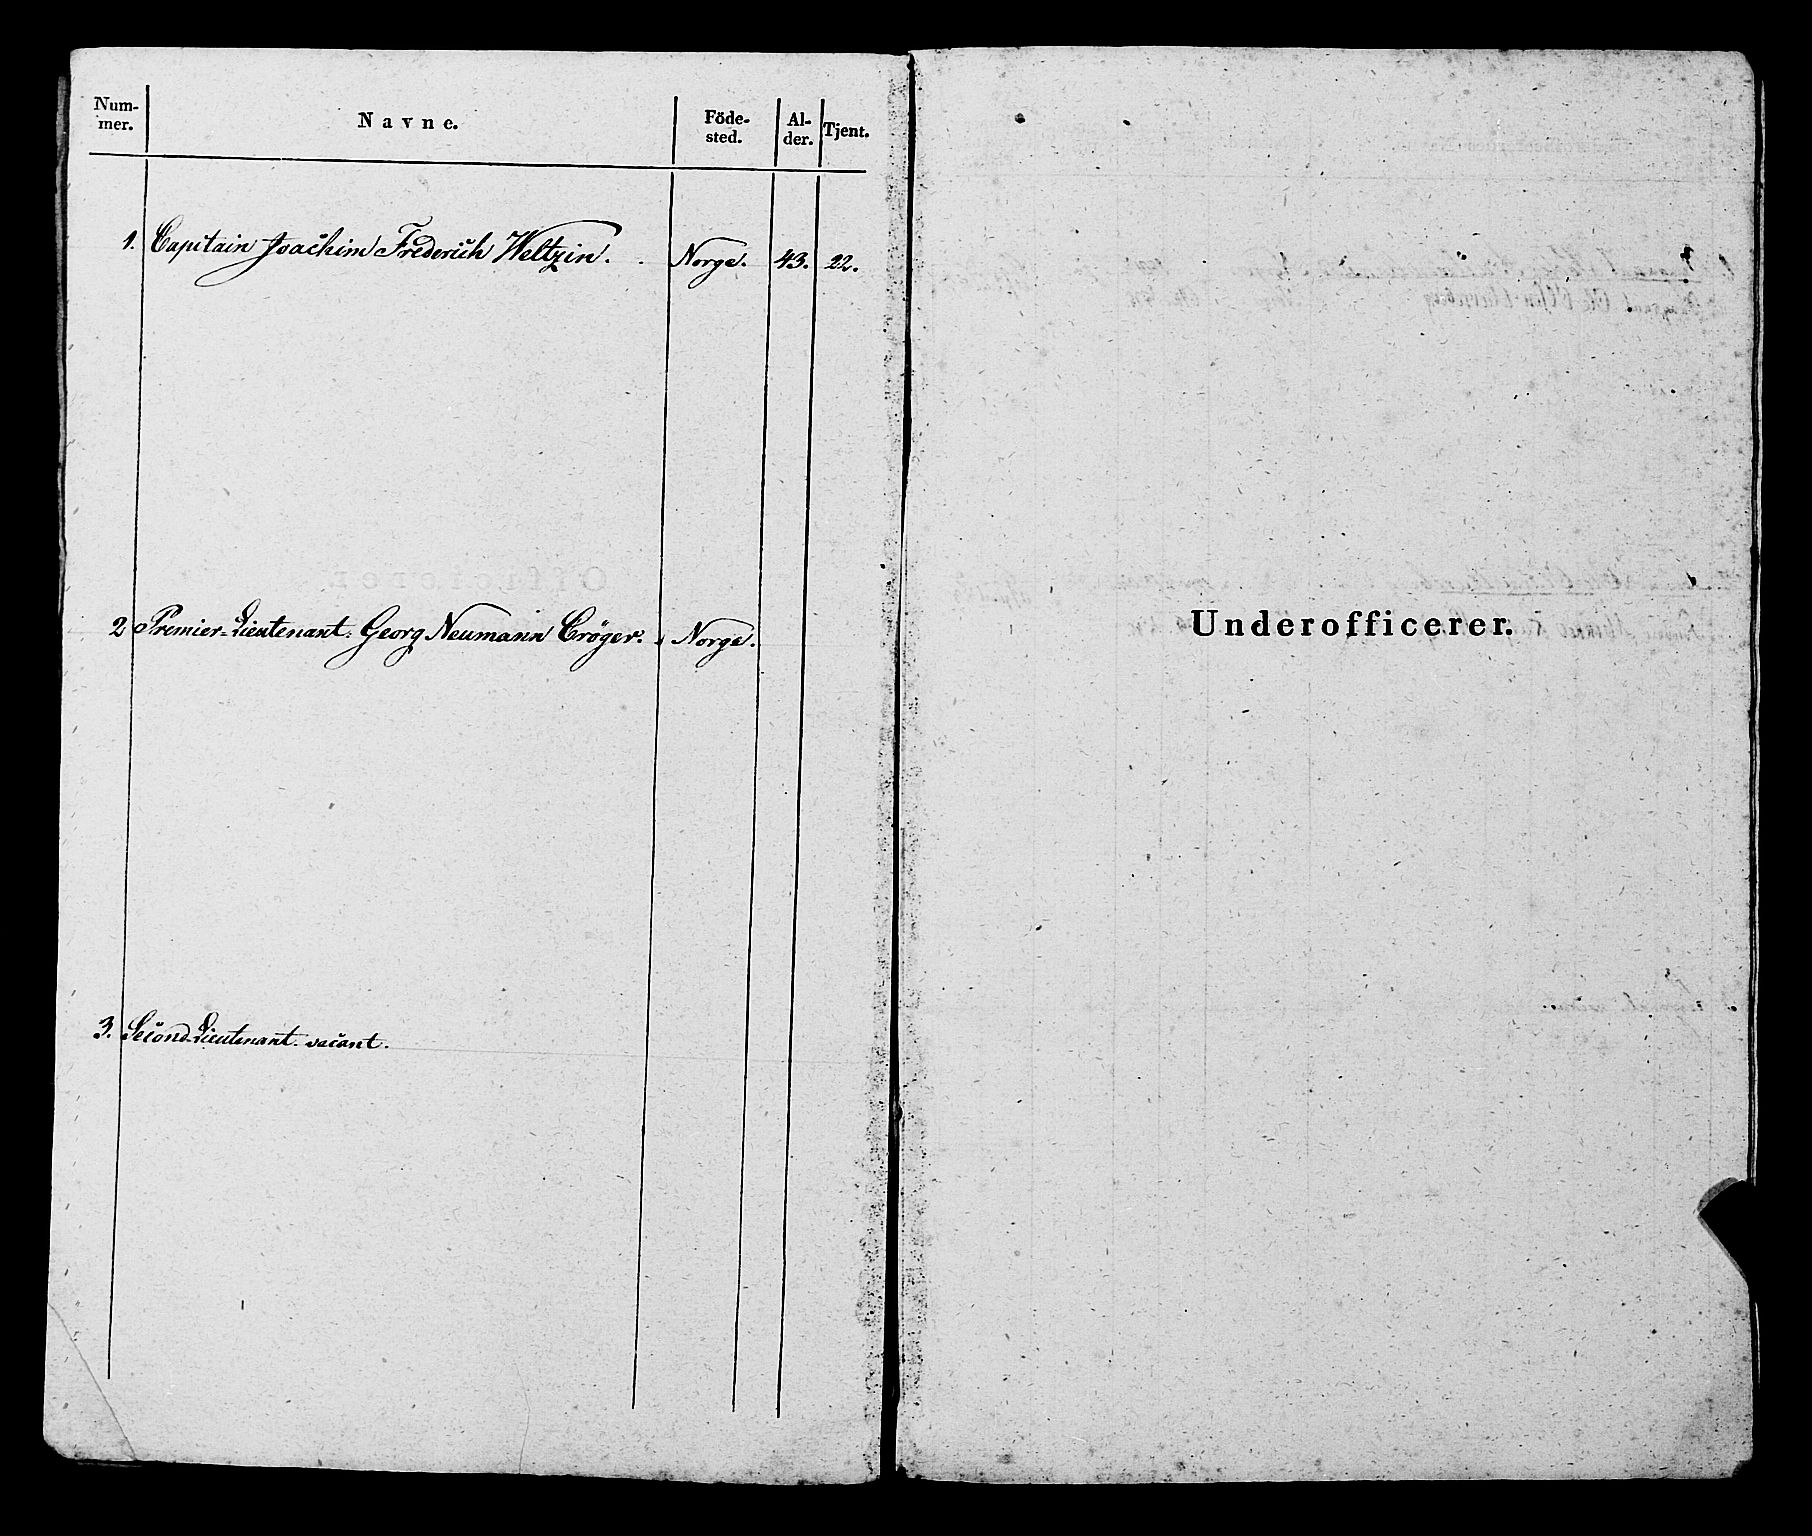 Num-
mer.
Navne.
Föde-
sted.
Al-
der.
Tjent.
1. Capitain Joachim Frederich Weltzin. Norge. 43. 22.
2 Premier-Lieutenant: Georg Neumann Cröger. Norge.
3. Second-Lieutenant vacant.
Underofficerer.